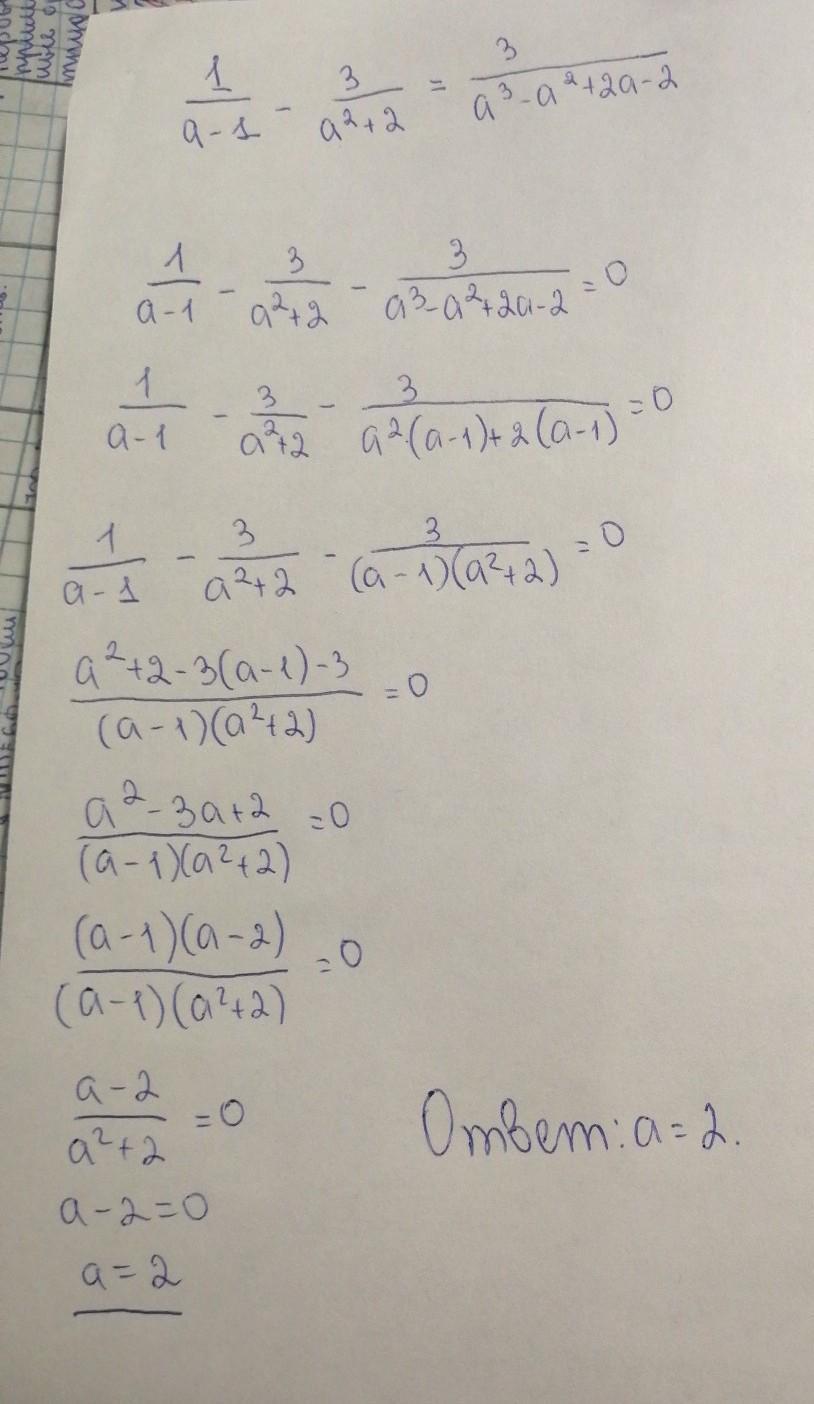 1/(a-1) - 3/(a²+2) = 3/(a³-a²+2a-2)
1/(a-1) - 3/(a²+2) - 3/(a³-a²+2a-2) = 0
1/(a-1) - 3/(a²+2) - 3/(a²·(a-1)+2(a-1)) = 0
1/(a-1) - 3/(a²+2) - 3/((a-1)(a²+2)) = 0
(a²+2-3(a-1)-3)/((a-1)(a²+2)) = 0
(a²-3a+2)/((a-1)(a²+2)) = 0
((a-1)(a-2))/((a-1)(a²+2)) = 0
(a-2)/(a²+2) = 0
Ответ: a = 2.
a-2=0
a=2